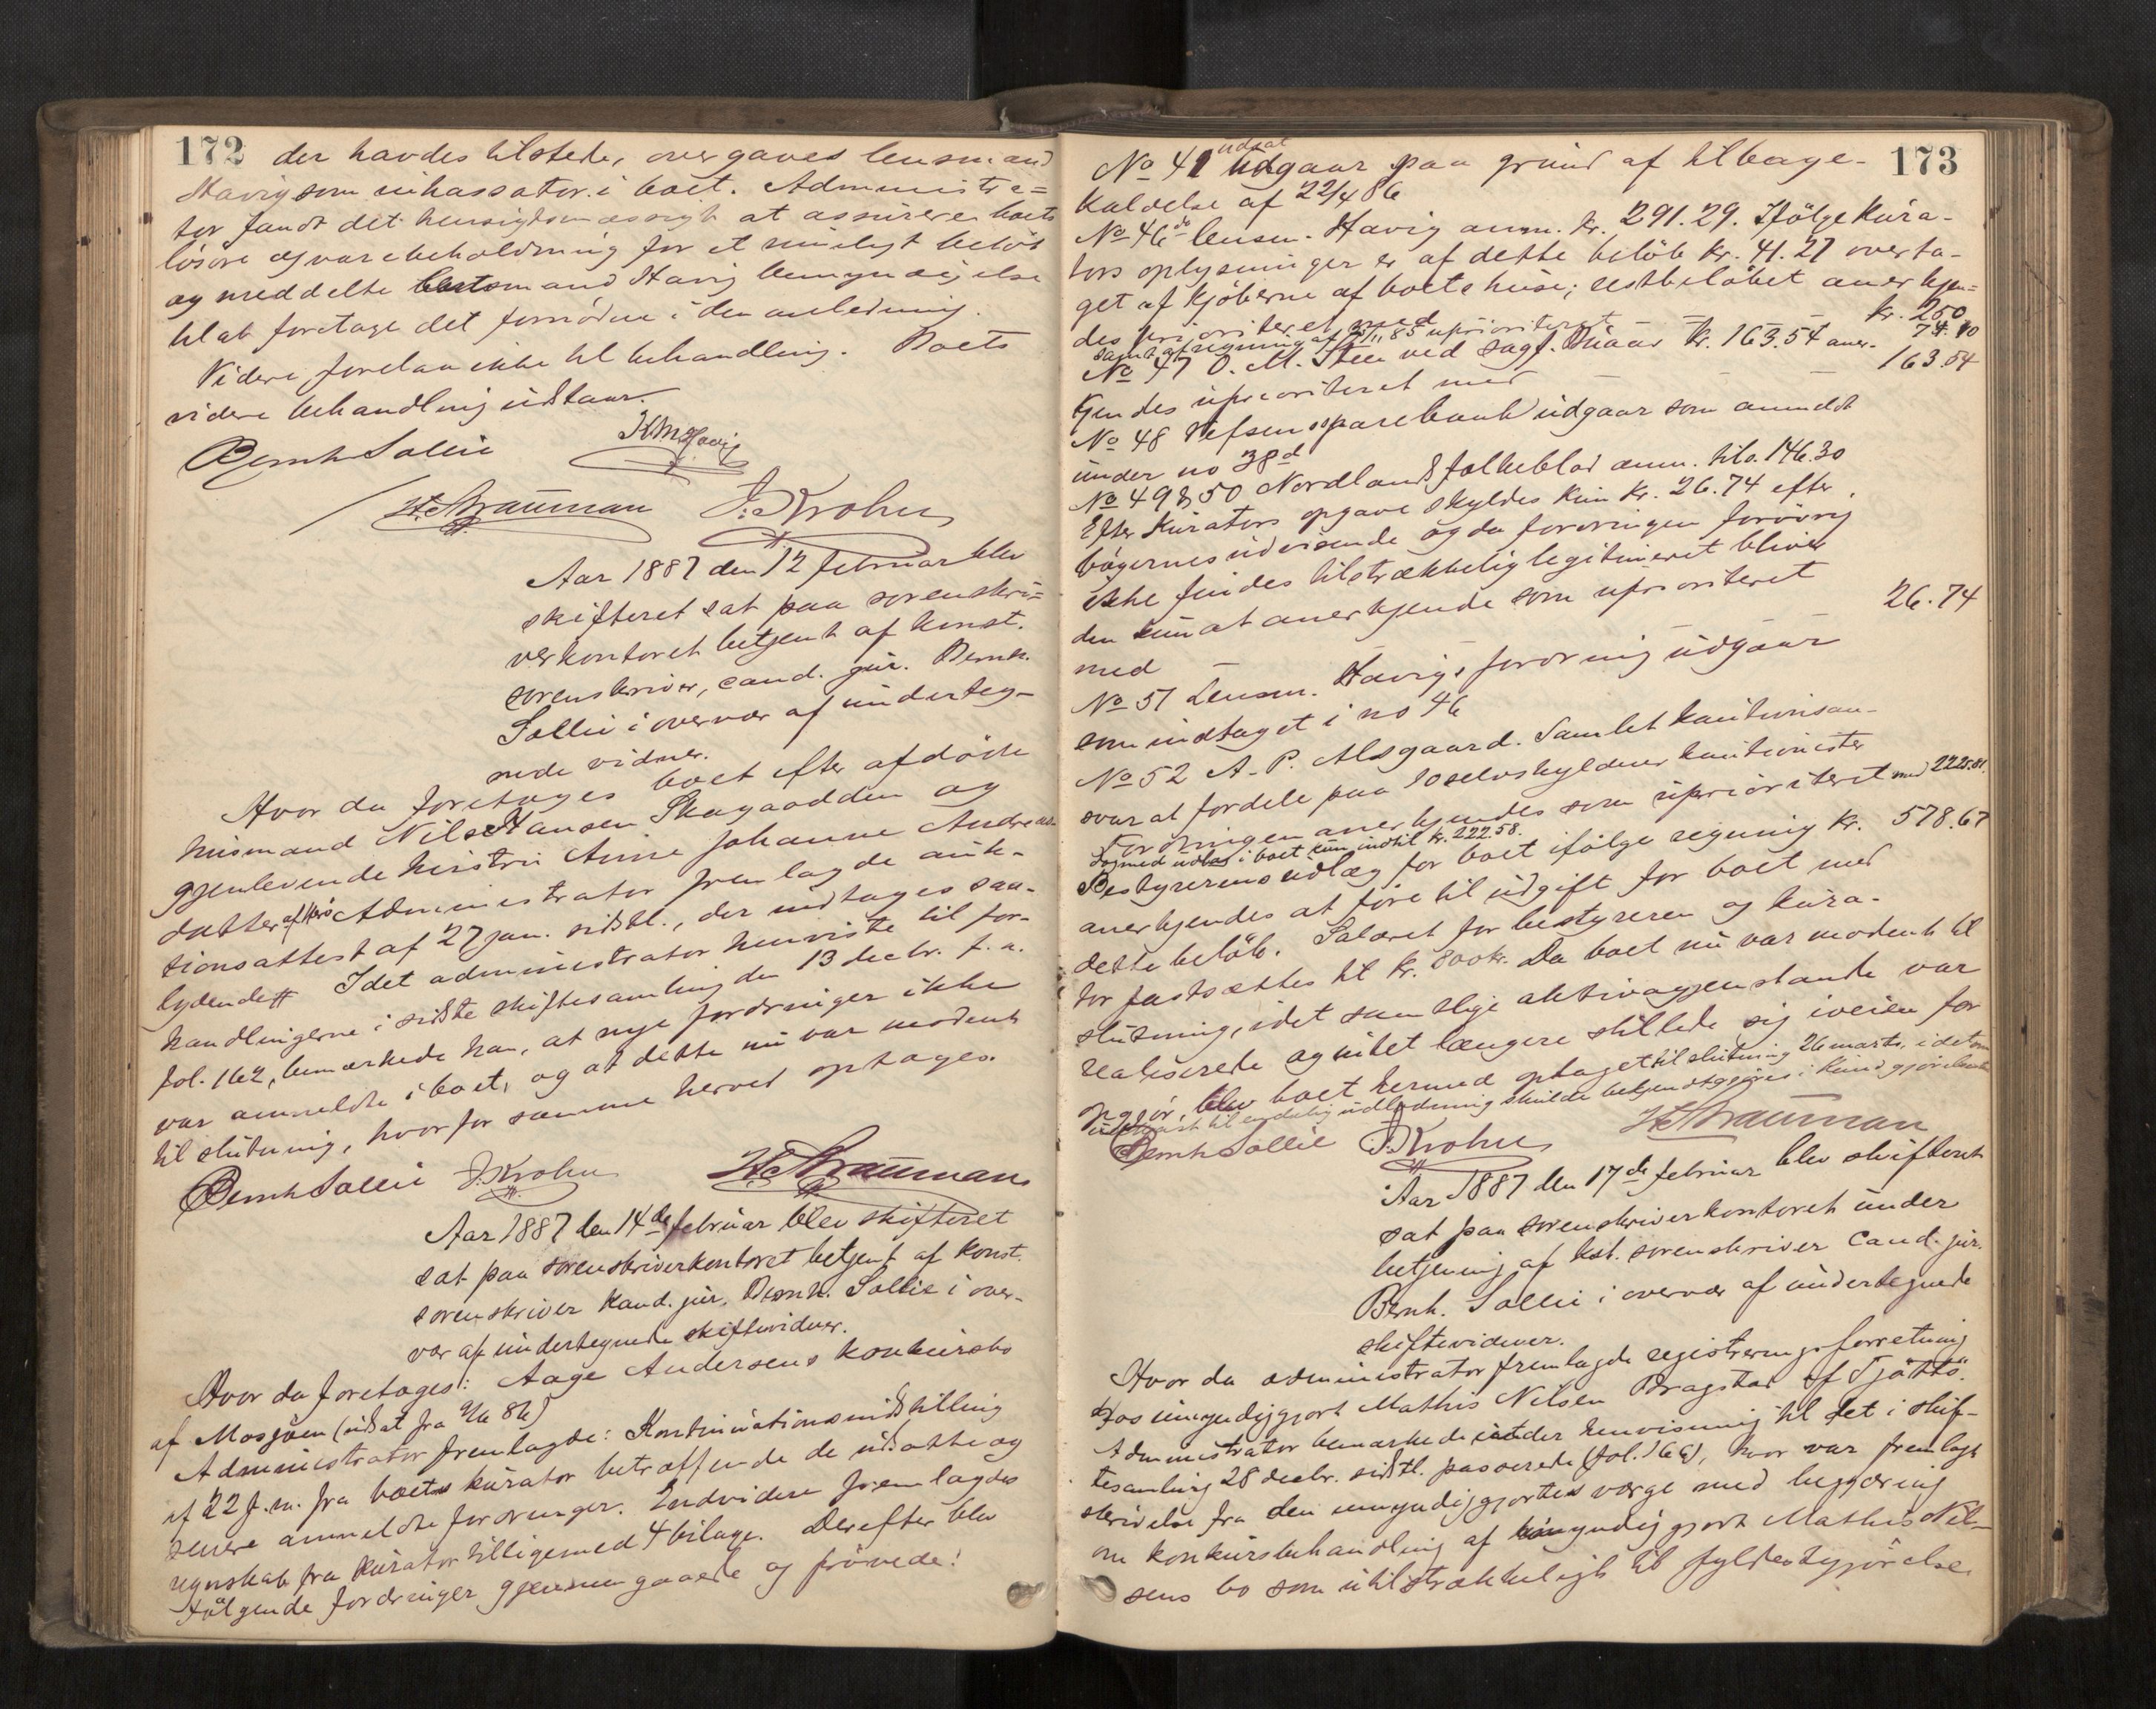 172
der havdes tilstede, overgaves lensmand
Havig som inkassator i boet. Administra=
tor fandt det hensigtsmæssigt at assurere boets
lösöre og varebeholdning for et rimeligt belöb
og meddelte lensmand Havig bemyndigelse
til at foretage det fornödne i den anledning.
Videre forelaa ikke til behandling. Boets
videre behandling udstaar.
Bernh Sollie HMHavig
H. Strauman J. Krohn
Aar 1887 den 12 februar blev
skifteret sat paa sorenskri=
verkontoret betjent af konst.
sorenskriver, cand. jur. Bernh.
Sollie i overvær af underteg-
nede vidner.
Hvor da foretoges boet efter afdöde
husmand Nils Hansen Skagaodden og
gjenlevende hustru Anne Johanne Andreas-
datter af Herö Administrator fremlagde auk-
tionsattest af 27 jan. sidstl., der indtages saa-
lydende # Idet administrator henviste til for-
handlingerne i sidste skiftesamling den 13 decbr. f. a.
fol. 162, bemærkede han, at nye fordringer ikke
var anmeldte i boet, og at dette nu var modent
til slutning, hvorfor samme herved optoges.
Bernh Sollie J. Krohn H. Strauman
Aar 1887 den 14de februar blev skifteret
sat paa sorenskriverkontoret betjent af konst.
sorenskriver kand. jur. Bernh. Sollie i over-
vær af undertegnede skiftevidner.
Hvor da foretoges: Aage Andersens konkursbo
af Mosjöen (udsat fra 9/6 86)
Administrator fremlagde: Kontinuationsindstilling
af 22 f. m. fra boets kurator betræffende de udsatte og
senere anmeldte fordringer. Endvidere fremlagdes
regnskab fra kurator tilligemed 4 bilage. Derefter blev
fölgende fordringer gjennemgaaede og prövede:
173
udsat
No 41 Udgaar paa grund af tilbage-
kaldelse af 22/4 86
No 46 do lensm. Havig anm. kr. 291.29. Ifölge kura-
tors oplysninger er af dette belöb kr. 41.27 overta-
get af kjöberne af boets huse; restbelöbet anerkjen=
des prioriteret med kr. 250
samt af regning af 25/11 85 uprioriteret 74.10
No 47 O. M. Steen ved sagf. Bhaar kr. 163.54 aner-
kjendes uprioriteret med 163.54
No 48 Vefsen sparebank udgaar som anmeldt
under no 38d
No 49 & 50 Nordlands folkeblad anm. tils. 146.30
Efter kurators opgave skyldes kun kr. 26.74 efter
bögernes udvisende og da fordringen forövrig
ikke findes tilstrækkelig legitimeret bliver
den kun at anerkjende som uprioriteret
med 26.74
No 51 Lensm. Havigs fordring udgaar
som indtaget i no 46
No 52 A. P. Alsgaard. Samlet kautionsan-
svar at fordele paa 10 selvskyldner kautionister
Fordringen anerkjendes som uprioriteret med 2225.81.
dog med udlæg i boet kun indtil kr. 222.58.
Bestyrerens udlæg for boet ifölge regning kr. 578.67
anerkjendes at före til udgift for boet med
dette belöb. Salæret for bestyreren og kura-
tor fastsættes til kr. 800 kr. Da boet nu var modent til
slutning, idet samtlige aktivagjenstande var
realiserede og intet længere stillede sig iveien for
opgjör, blev boet hermed optaget til slutning 26 marts, idet som
udkast til endelig udlodning skulde bekjendtgjöres i Kundgjörelsest.
Bernh Sollie J. Krohn H. Strauman
Aar 1887 den 17de februar blev skifteret
sat paa sorenskriverkontoret under
betjening af kst. sorenskriver Cand. jur.
Bernh. Sollie i overvær af undertegnede
skiftevidner.
Hvor da administrator fremlagde registreringsforretning
hos umyndiggjort Mathis Nilsen Bragstad af Tjöttö.
Administrator bemærkede under henvisning til det i skif-
tesamling 28 decbr. sidstl. passerede (fol. 166), hvor var fremlagt
skrivelse fra den umyndiggjortes værge med begjæring
om konkursbehandling af umyndiggjort Mathis Nil-
sens bo som utilstrækkeligt til fyldestgjörelse